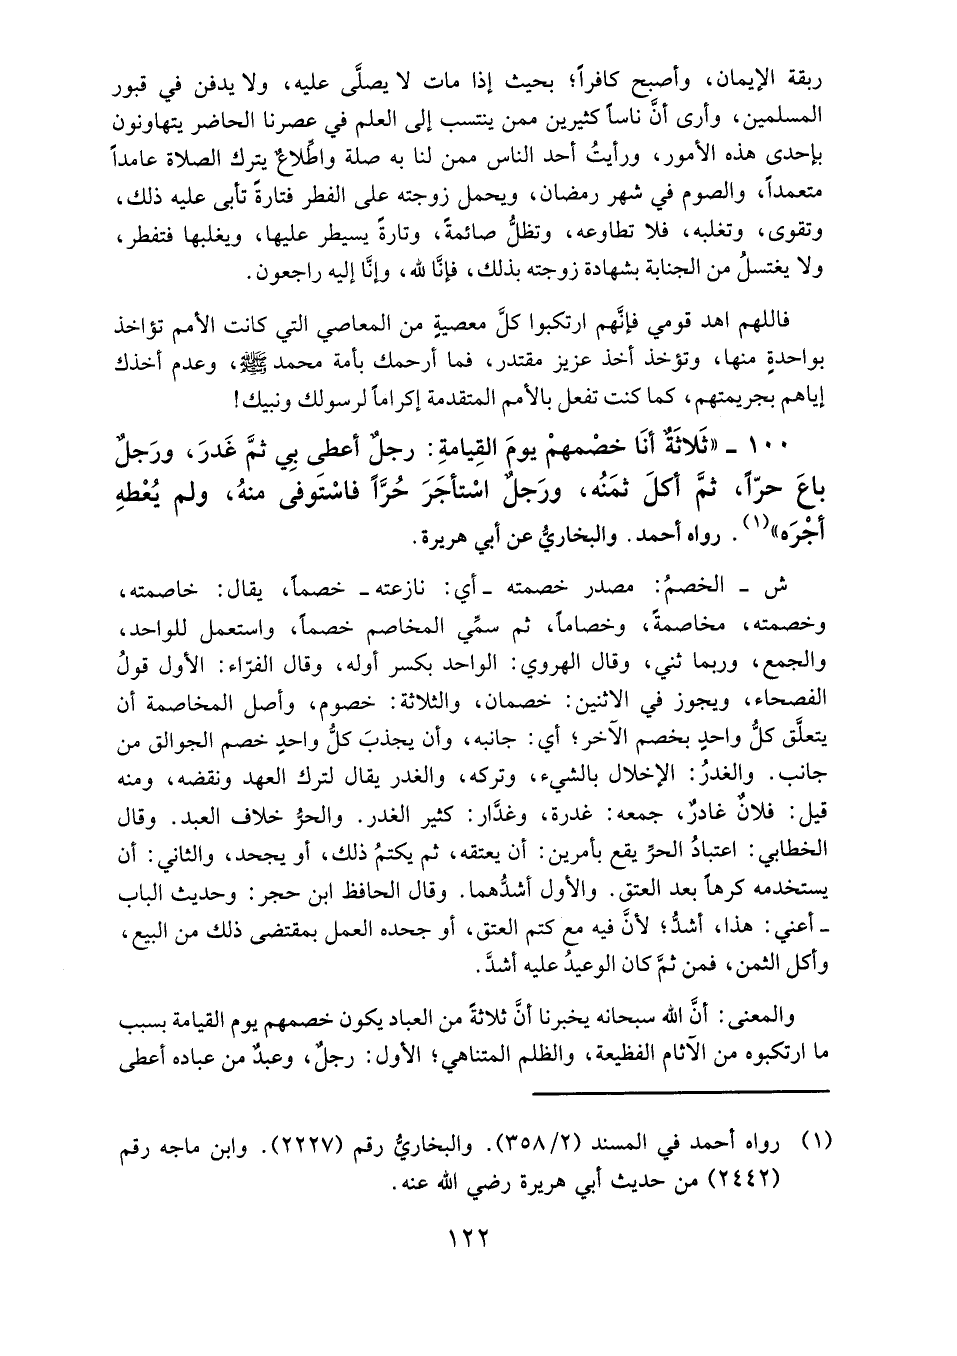 ربقة الإيمان، وأصبح كافراً؛ بحيث إذا مات لا يصلَّى عليه، ولا يدفن في قبور
المسلمين، وأرى أنَّ ناساً كثيرين ممن ينتسب إلى العلم في عصرنا الحاضر يتهاونون
بإحدى هذه الأمور، ورأيتُ أحد الناس ممن لنا به صلة واطِّلاعٌ يترك الصلاة عامداً
متعمداً، والصوم في شهر رمضان، ويحمل زوجته على الفطر فتارةً تأبى عليه ذلك،
وتقوى، وتغلبه، فلا تطاوعه، وتظلُّ صائمةً، وتارةً يسيطر عليها، ويغلبها فتفطر،
ولا يغتسلُ من الجنابة بشهادة زوجته بذلك، فإنَّا لله، وإنَّا إليه راجعون.
فاللهم اهد قومي فإنَّهم ارتكبوا كلَّ معصيةٍ من المعاصي التي كانت الأمم تؤاخذ
بواحدةٍ منها، وتؤخذ أخذ عزيز مقتدر، فما أرحمك بأمة محمد ﷺ، وعدم أخذك
إياهم بجريمتهم، كما كنت تفعل بالأمم المتقدمة إكراماً لرسولك ونبيك!
١٠٠ ـ «ثَلاثَةٌ أنَا خصْمهمْ يومَ القِيامةِ: رجلٌ أعطى بِي ثمَّ غَدرَ، ورَجلٌ
باعَ حرّاً، ثمَّ أكلَ ثمَنُه، ورَجلٌ اسْتأجَرَ حُرَّاً فاسْتَوفى منهُ، ولم يُعْطهِ
أجْرَه»(١). رواه أحمد. والبخاريُّ عن أبي هريرة.
ش ـ الخصمُ: مصدر خصمته ـ أي: نازعته ـ خصماً، يقال: خاصمته،
وخصمته، مخاصمةً، وخصاماً، ثم سمِّي المخاصم خصماً، واستعمل للواحد،
والجمع، وربما ثني، وقال الهروي: الواحد بكسر أوله، وقال الفرّاء: الأول قولُ
الفصحاء، ويجوز في الاثنين: خصمان، والثلاثة: خصوم، وأصل المخاصمة أن
يتعلَّق كلُّ واحدٍ بخصم الآخر؛ أي: جانبه، وأن يجذبَ كلُّ واحدٍ خصم الجوالق من
جانب. والغدرُ: الإخلال بالشيء، وتركه، والغدر يقال لترك العهد ونقضه، ومنه
قيل: فلانٌ غادرٌ، جمعه: غدرة، وغدَّار: كثير الغدر. والحرُّ خلاف العبد. وقال
الخطابي: اعتبادُ الحرِّ يقع بأمرين: أن يعتقه، ثم يكتمُ ذلك، أو يجحد، والثاني: أن
يستخدمه كرهاً بعد العتق. والأول أشدُّهما. وقال الحافظ ابن حجر: وحديث الباب
ـ أعني: هذا، أشدُّ؛ لأنَّ فيه مع كتم العتق، أو جحده العمل بمقتضى ذلك من البيع،
وأكل الثمن، فمن ثمَّ كان الوعيدُ عليه أشدَّ.
والمعنى: أنَّ الله سبحانه يخبرنا أنَّ ثلاثةً من العباد يكون خصمهم يوم القيامة بسبب
ما ارتكبوه من الآثام الفظيعة، والظلم المتناهي؛ الأول: رجلٌ، وعبدٌ من عباده أعطى
(١) رواه أحمد في المسند (٣٥٨/٢). والبخاريُّ رقم (٢٢٢٧). وابن ماجه رقم
(٢٤٤٢) من حديث أبي هريرة رضي الله عنه.
١٢٢